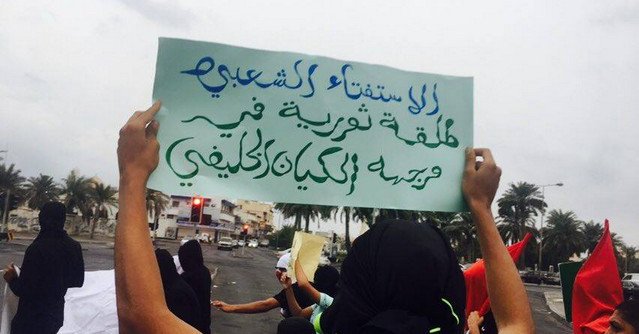 الاستفتاء الشعبي
طلقة ثورية في
وجه الكيان الخليفي